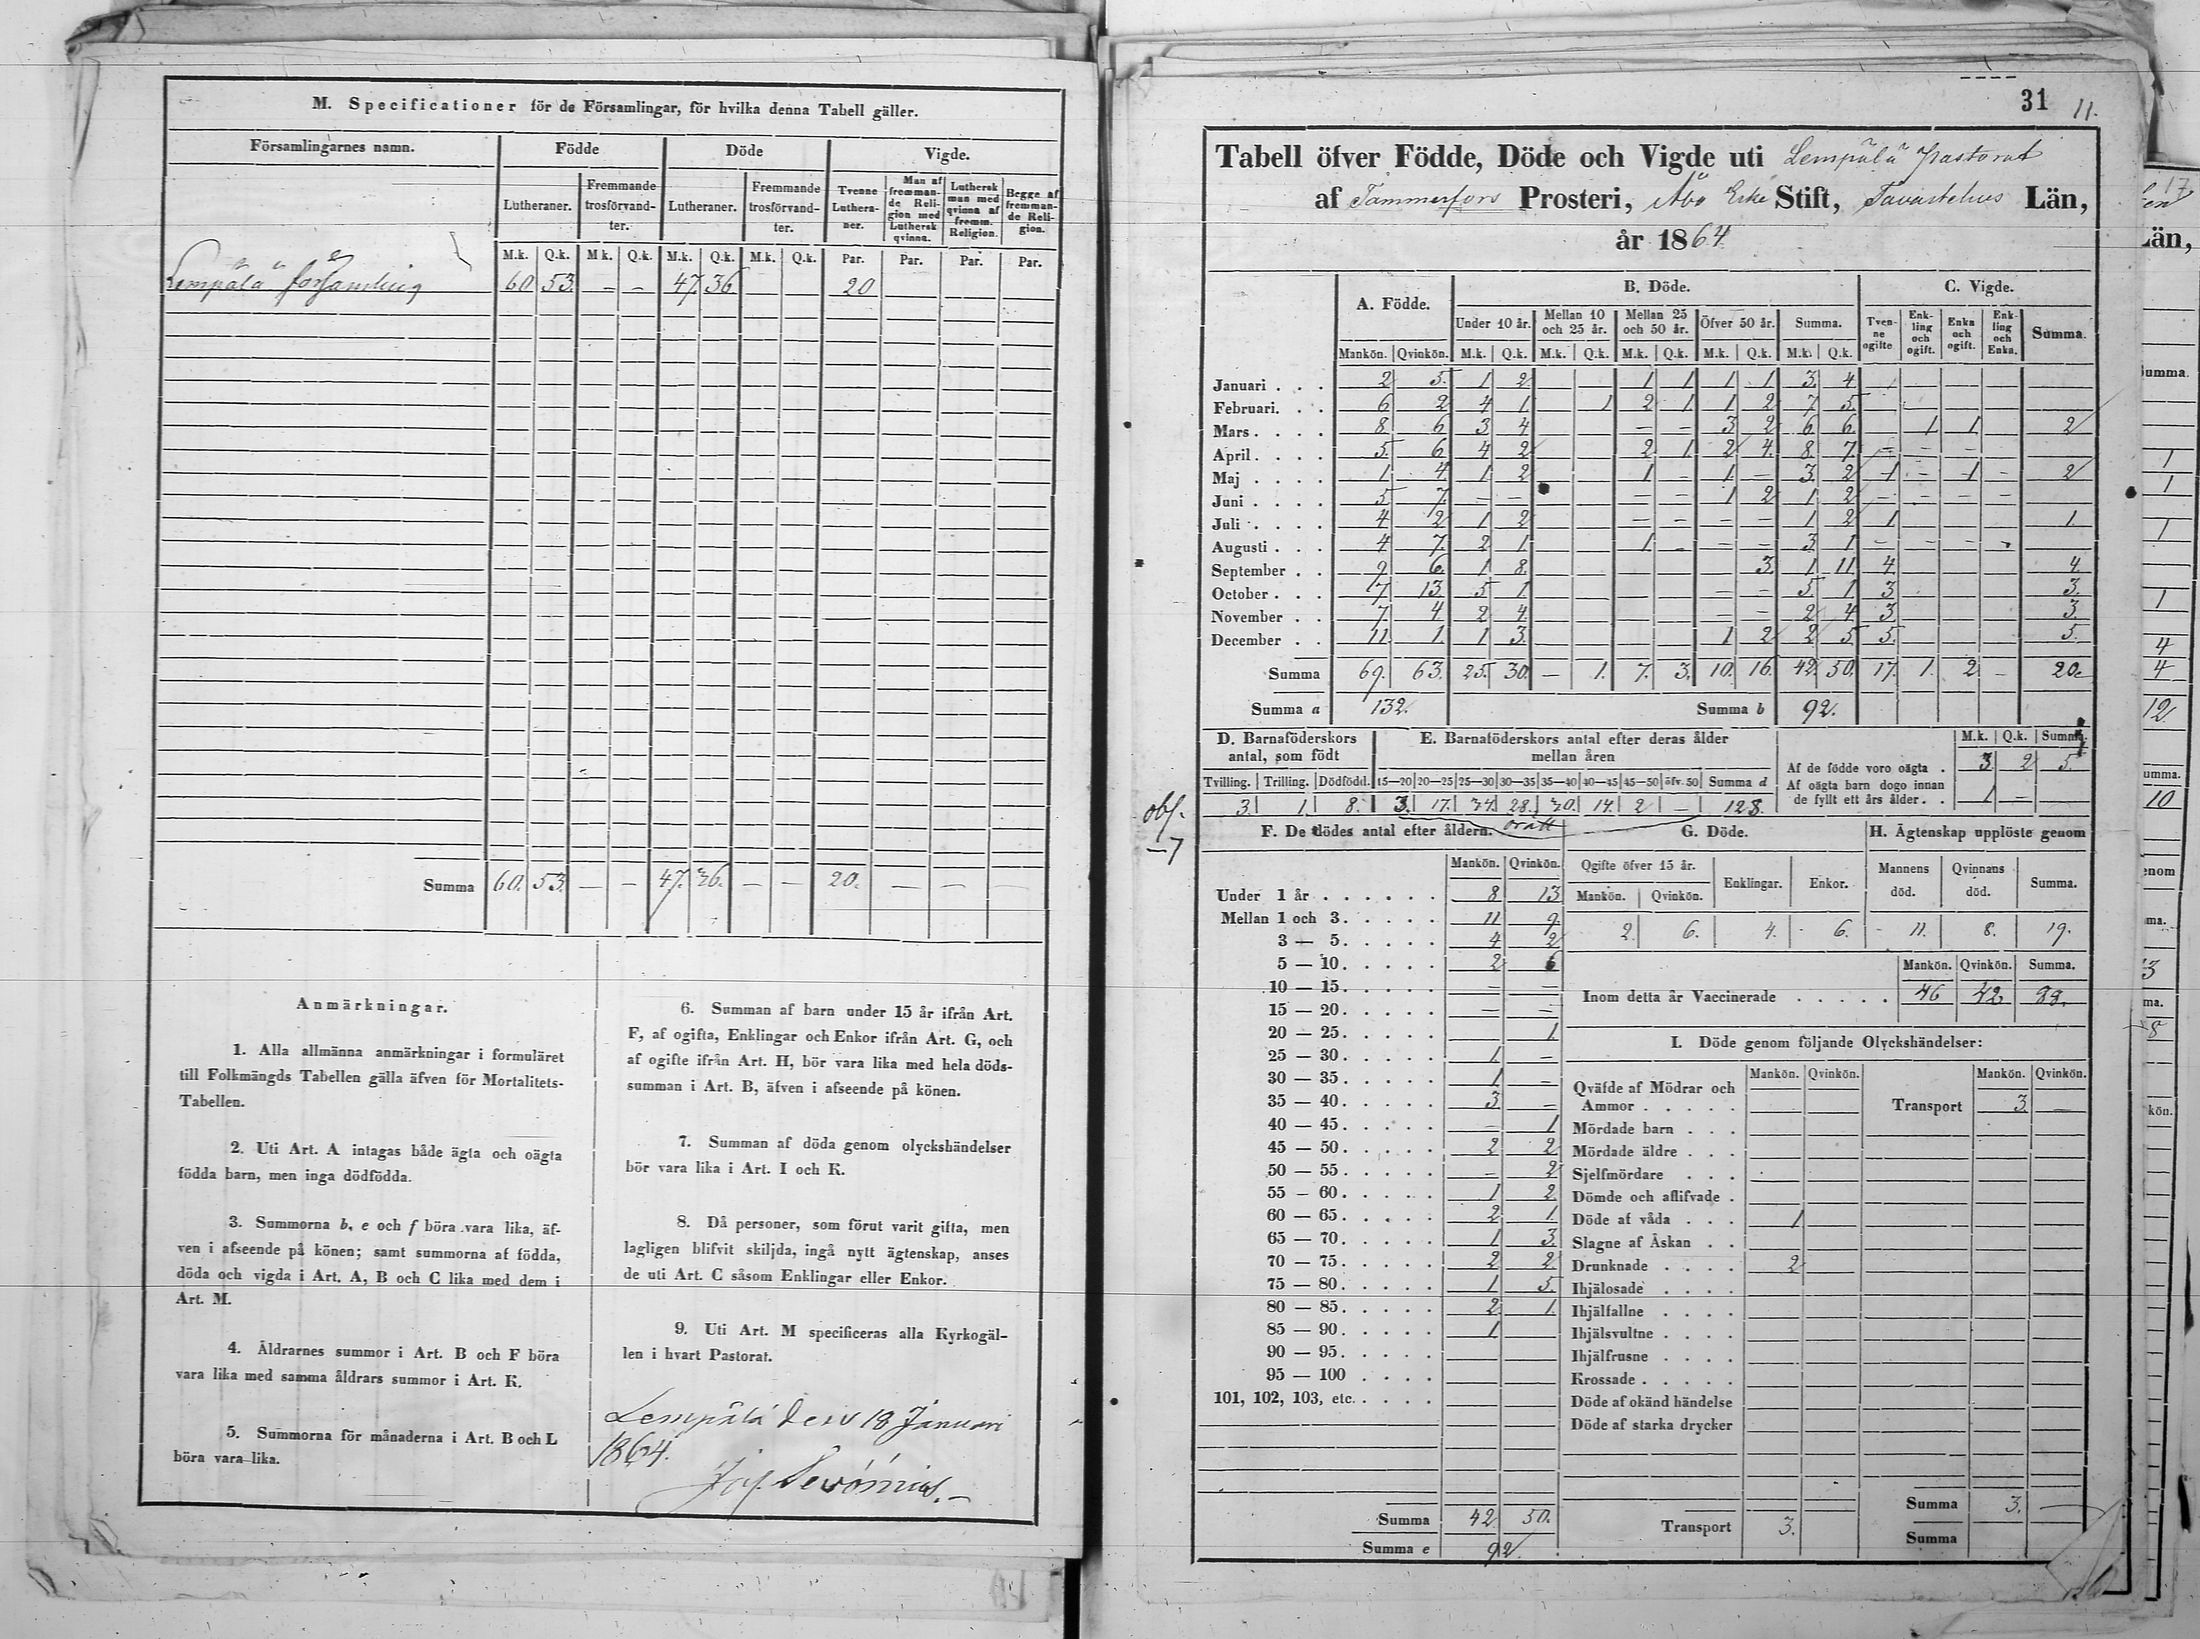 M. Specificationer för de Församlingar, för hvilka denna Tabell gäller.
Församlingarnes namn. | Födde | Döde | Vigde.
Lutheraner. | Fremmande trosförvandter. | Lutheraner. | Fremmande trosförvandter. | Tvenne Lutheraner. | Man af fremmande Religion med Luthersk qvinna. | Luthersk man med qvinna af fremm. Religion. | Begge af fremmande Religion.
M.k. | Q.k. | M.k. | Q.k. | M.k. | Q.k. | M.k. | Q.k. | Par. | Par. | Par. | Par.
Lempälä församling | 60 | 53 | – | – | 47 | 36 | | | 20
Summa | 60. | 53. | – | – | 47. | 36. | – | – | 20. | – | – | –
Anmärkningar.
1. Alla allmänna anmärkningar i formuläret
till Folkmängds Tabellen gälla äfven för Mortalitets-
Tabellen.
2. Uti Art. A intagas både ägta och oägta
födda barn, men inga dödfödda.
3. Summorna b, e och f böra vara lika, äf-
ven i afseende på könen; samt summorna af födda,
döda och vigda i Art. A, B och C lika med dem i
Art. M.
4. Åldrarnes summor i Art. B och F böra
vara lika med samma åldrars summor i Art. K.
5. Summorna för månaderna i Art. B och L
böra vara lika.
6. Summan af barn under 15 år ifrån Art.
F, af ogifta, Enklingar och Enkor ifrån Art. G, och
af ogifte ifrån Art. H, bör vara lika med hela döds-
summan i Art. B, äfven i afseende på könen.
7. Summan af döda genom olyckshändelser
bör vara lika i Art. I och K.
8. Då personer, som förut varit gifta, men
lagligen blifvit skiljda, ingå nytt ägtenskap, anses
de uti Art. C såsom Enklingar eller Enkor.
9. Uti Art. M specificeras alla Kyrkogäl-
len i hvart Pastorat.
Lempälä den 18 Januari
1864.
31 11.
Tabell öfver Födde, Döde och Vigde uti Lempälä Pastorat
af Tammerfors Prosteri, Åbo Erke Stift, Tavastehus Län,
år 1864.
A. Födde. | B. Döde. | C. Vigde.
Under 10 år. | Mellan 10 och 25 år. | Mellan 25 och 50 år. | Öfver 50 år. | Summa. | Tvenne ogifte | Enkling och ogift. | Enka och ogift. | Enkling och Enka. | Summa.
Mankön. | Qvinkön. | M.k. | Q.k. | M.k. | Q.k. | M.k. | Q.k. | M.k. | Q.k. | M.k. | Q.k.
Januari . . . | 2 | 5. | 1 | 2 | | | 1 | 1 | 1 | 1 | 3. | 4
Februari. . . | 6 | 2 | 4 | 1 | | 1 | 2 | 1 | 1 | 2 | 7 | 5
Mars . . . . | 8 | 6 | 3 | 4 | | | – | – | 3 | 2 | 6 | 6 | | 1 | 1 | | 2
April. . . . | 5. | 6 | 4 | 2 | | | 2 | 1 | 2 | 4. | 8. | 7 | – | – | –
Maj . . . . | 1 | 4. | 1 | 2 | | | 1 | – | 1 | – | 3. | 2 | 1 | – | 1 | – | 2
Juni . . . . | 5 | 7. | – | – | | | – | – | 1 | 2 | 1 | 2 | – | – | – | –
Juli . . . . | 4 | 2 | 1 | 2 | | | – | – | – | – | 1 | 2 | 1 | | | | 1
Augusti . . . | 4 | 7. | 2 | 1 | | | 1 | – | – | – | 3 | 1 | – | – | – | –
September . . | 9 | 6. | 1 | 8. | | | | | | 3 | 1 | 11 | 4 | | | | 4.
October . . . | 7 | 13. | 5 | 1 | | | | | – | – | 5 | 1 | 3 | | | | 3.
November . . | 7. | 4. | 2 | 4. | | | | | – | – | 2 | 4 | 3 | | | | 3.
December . . | 11. | 1. | 1 | 3. | | | | | 1 | 2 | 2 | 5 | 5. | | | | 5.
Summa | 69. | 63. | 25. | 30. | – | 1. | 7. | 3. | 10. | 16. | 42. | 50. | 17. | 1. | 2. | – | 20.
Summa a | 132. | Summa b | 92.
D. Barnaföderskors antal, som födt | E. Barnaföderskors antal efter deras ålder mellan åren | M.k. | Q.k. | Summa.
Tvilling. | Trilling. | Dödfödd. | 15–20 | 20–25 | 25–30 | 30–35 | 35–40 | 40–45 | 45–50 | öfv. 50 | Summa d
3. | 1. | 8. | 3. | 17. | 34. | 28. | 30. | 14. | 2 | – | 128.
Af de födde voro oägta . | 3. | 2 | 5.
Af oägta barn dogo innan de fyllt ett års ålder. . | 1 | –
obs.
–7
orätt
F. De dödes antal efter åldern.
Mankön. | Qvinkön.
Under 1 år . . . . . . | 8 | 13
Mellan 1 och 3. . . . . | 11 | 9
3 — 5. . . . . | 4 | 2
5 — 10. . . . . | 2 | 6
10 — 15. . . . . | – | –
15 — 20. . . . . | – | –
20 — 25. . . . . | | 1
25 — 30. . . . . | 1 | –
30 — 35. . . . . | 1 | –
35 — 40. . . . . | 3 | –
40 — 45. . . . . | – | 1
45 — 50. . . . . | 2 | 2
50 — 55. . . . . | – | 2
55 – 60. . . . . | 1 | 2
60 — 65. . . . . | 2 | 1.
65 — 70. . . . . | 1 | 3.
70 — 75. . . . . | 2 | 2
75 — 80. . . . . | 1 | 5.
80 — 85. . . . . | 2 | 1.
85 — 90. . . . . | 1
90 — 95. . . . .
95 — 100 . . . .
101, 102, 103, etc. . . . .
Summa | 42 | 50.
Summa e | 92.
G. Döde.
Ogifte öfver 15 år. | Enklingar. | Enkor.
Mankön. | Qvinkön.
2. | 6. | 4. | 6.
H. Ägtenskap upplöste genom
Mannens död. | Qvinnans död. | Summa.
11. | 8. | 19.
Mankön. | Qvinkön. | Summa.
Inom detta år Vaccinerade . . . . . | 46 | 42 | 88.
I. Döde genom följande Olyckshändelser:
Mankön. | Qvinkön. | Mankön. | Qvinkön.
Qväfde af Mödrar och Ammor . . . . . | Transport | 3 | –
Mördade barn . . .
Mördade äldre . . .
Sjelfmördare . . .
Dömde och aflifvade .
Döde af våda . . . | 1
Slagne af Åskan . .
Drunknade . . . . | 2
Ihjälosade . . . .
Ihjälfallne . . . .
Ihjälsvultne . . . .
Ihjälfrusne . . . .
Krossade . . . . .
Döde af okänd händelse
Döde af starka drycker
Transport | 3. | Summa | 3. | –
Summa